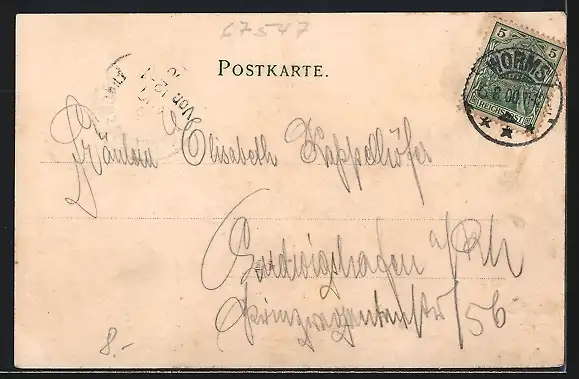 67547
POSTKARTE.
5 5
REICHSPOST
WORMS
Fräulein Elisabeth Kappelhöfer
Ludwigshafen a/Rh
Prinzregentenstr/56
8.-